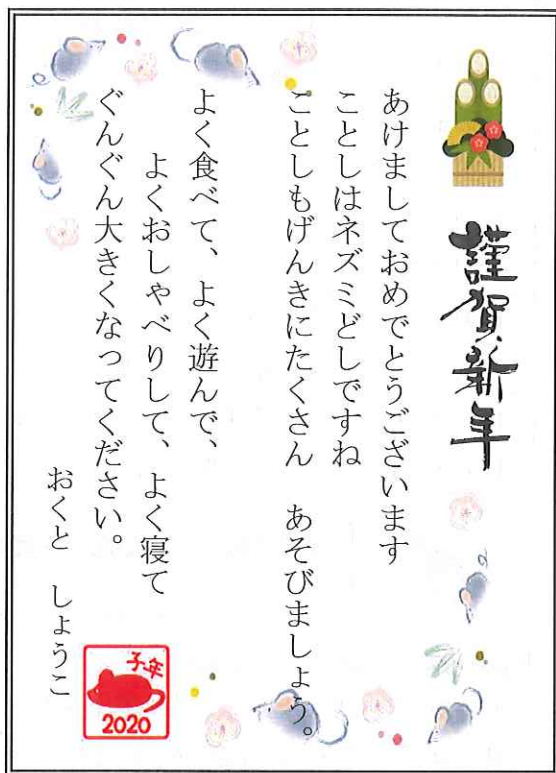 謹賀新年
あけましておめでとうございます
ことしはネズミどしですね
ことしもげんきにたくさん　あそびましょう。
よく食べて、よく遊んで、
よくおしゃべりして、よく寝て
ぐんぐん大きくなってください。
おくと　しょうこ
子年
2020